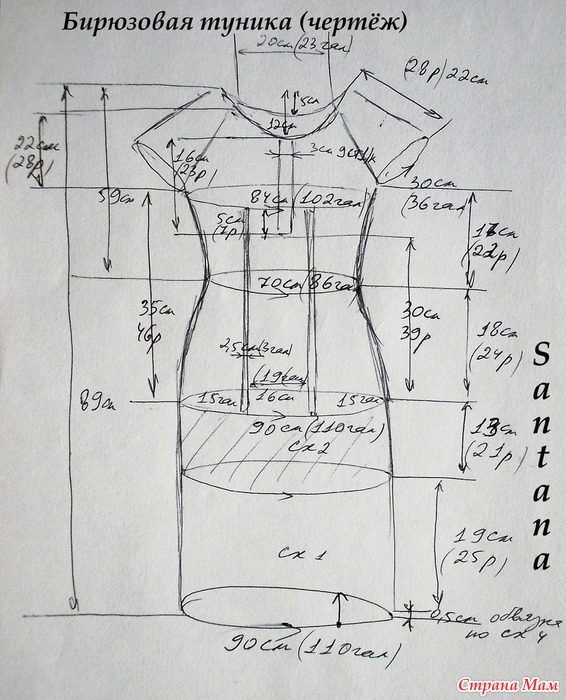 Бирюзовая туника (чертёж)
20см (23гал)
(28р) 22см
5см
12см
22см
(28р)
16см
(23р)
3см
30см
(36гал
84см (102гал)
5см
(7р)
59см
(22р)
70см (86гал
35см
46р
30см
39р
18см
(24р)
2,5см (3гал)
16см
15гал
15гал
89см
90см (110гал)
сх 2
(21р)
19см
(25р)
сх 1
0,5см обвязка
по сх 4
90см (110гал)
Santana
Страна Мам